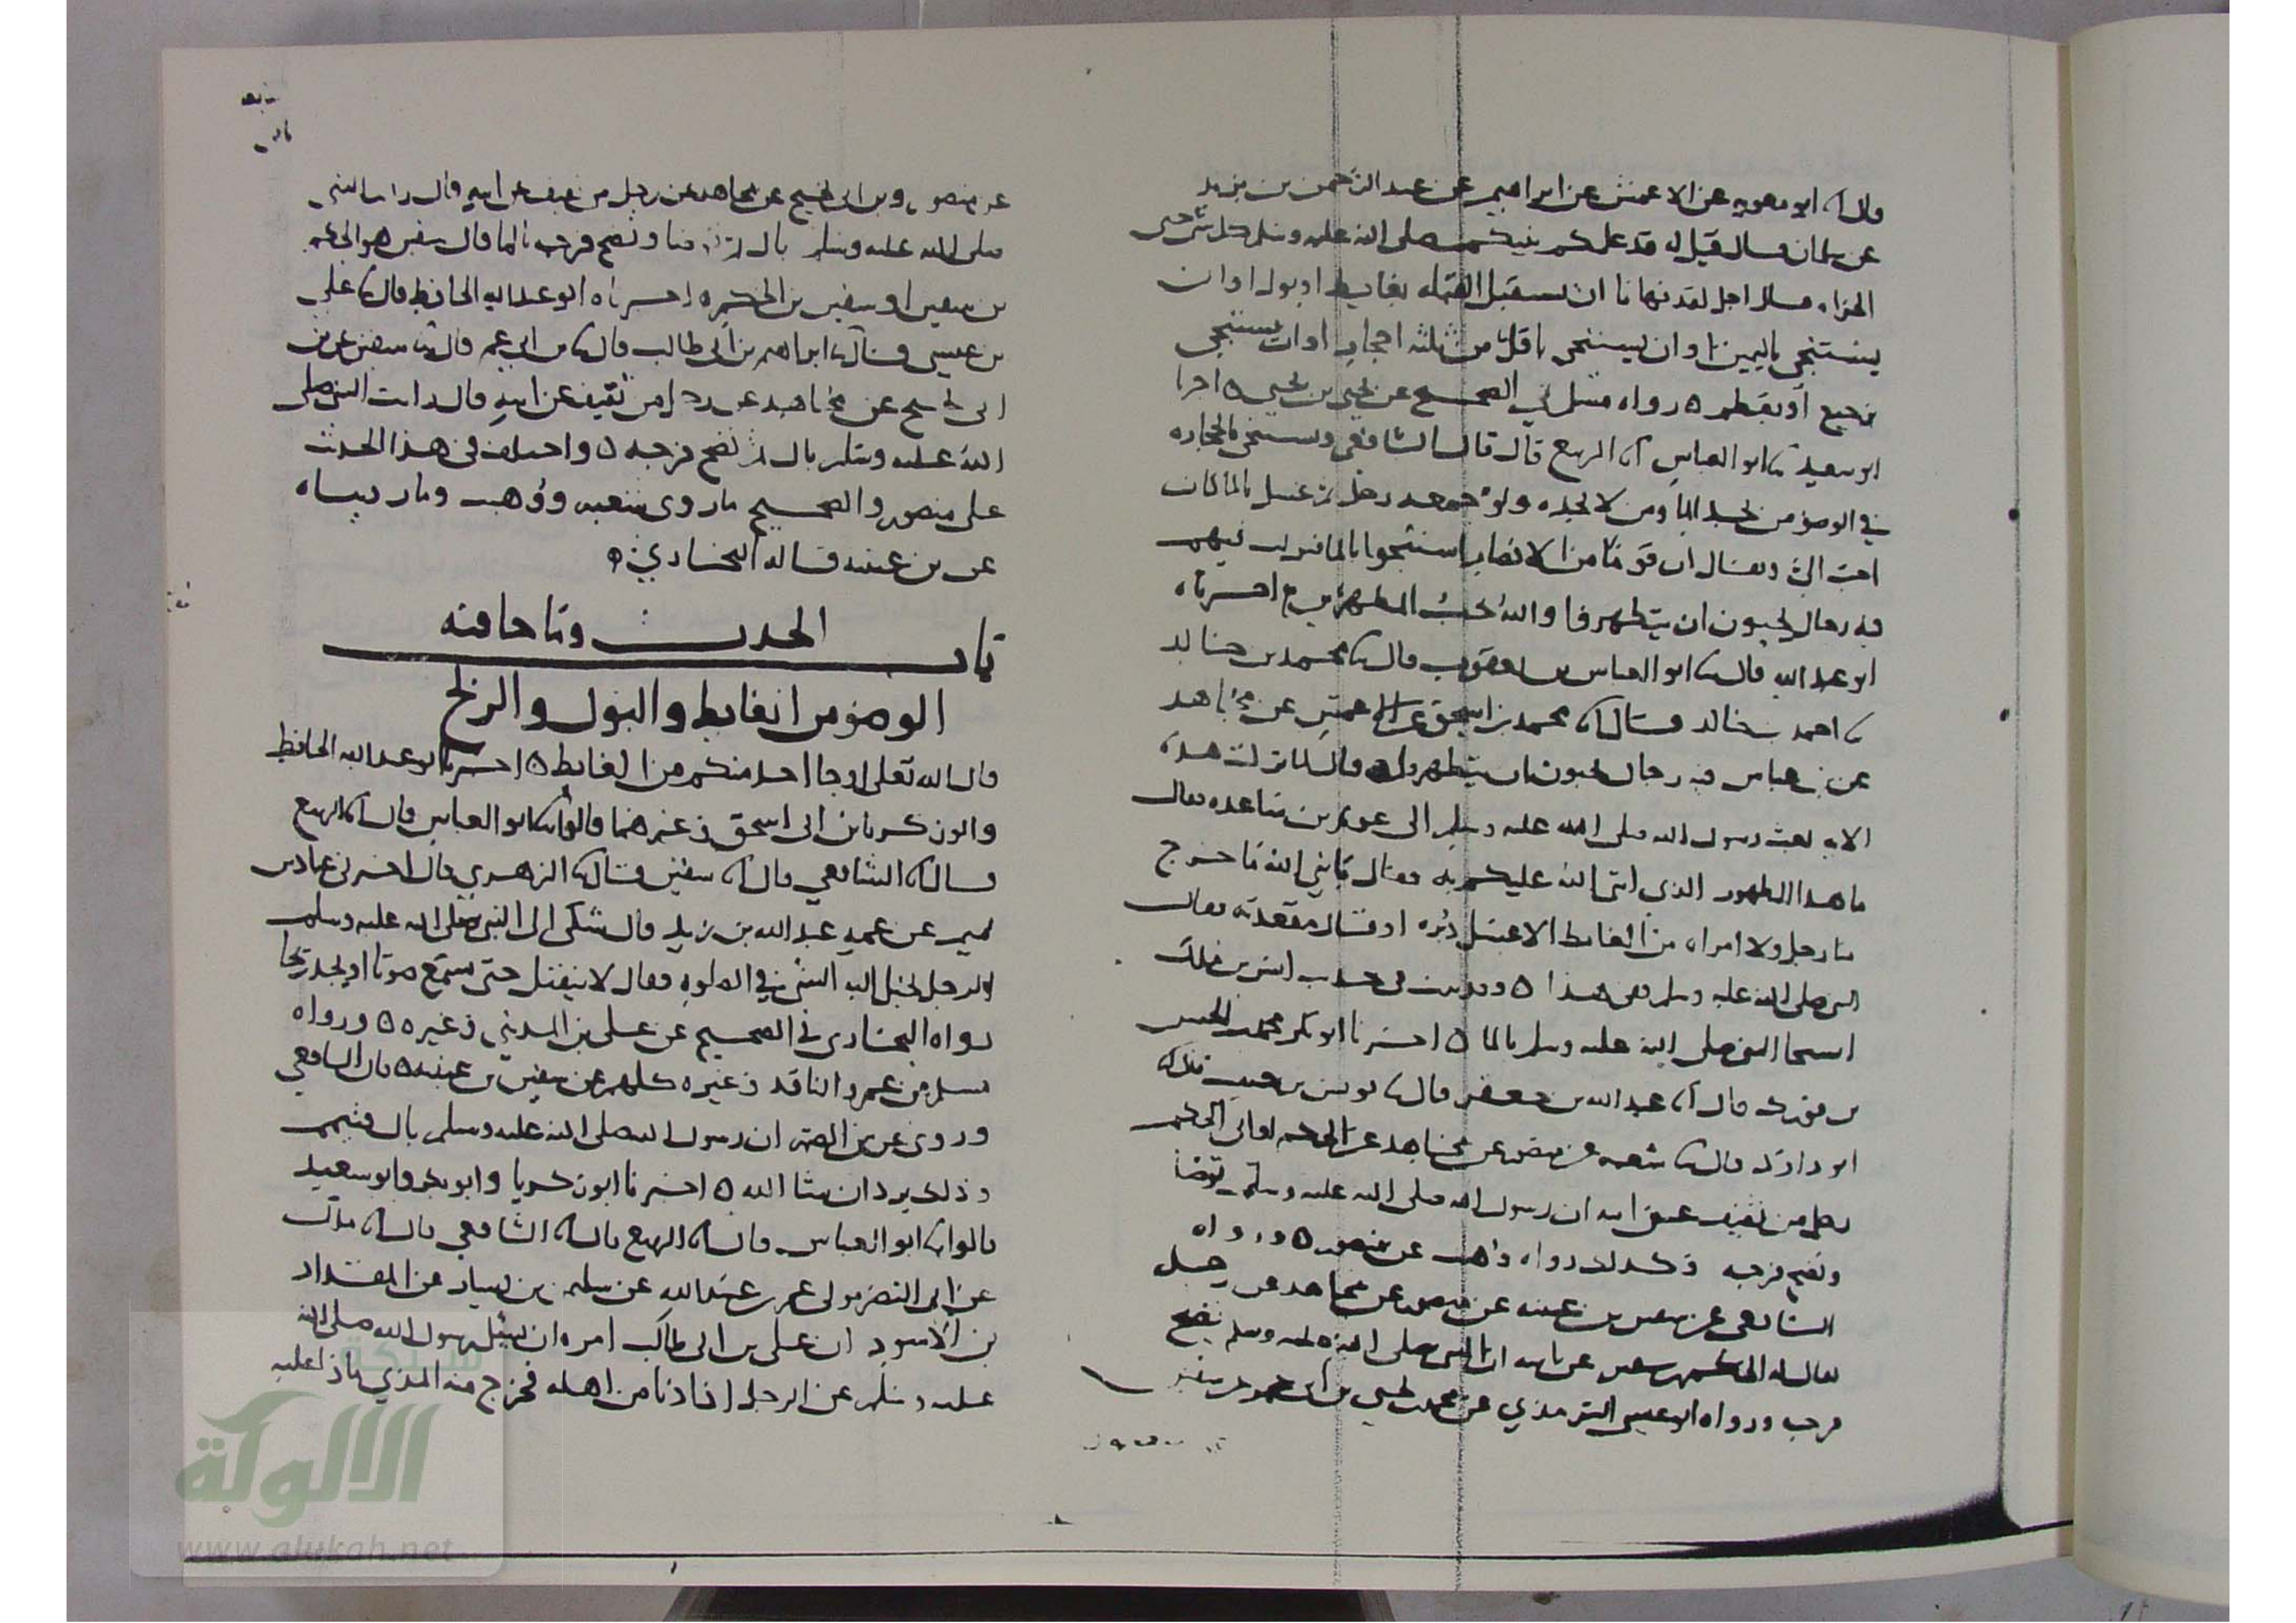 قال ثنا ابو معويه عن الاعمش عن ابراهيم عن عبد الرحمن بن يزيد
عن سلمان قال قيل له قد علمكم نبيكم صلى الله عليه وسلم كل شي حتى
الخراه قال اجل لقد نهانا ان نستقبل القبله بغايط او بول او ان
يستنجي باليمين او ان يستنجي باقل من ثلثه احجار او ان يستنجي
برجيع او بعظم ٥ رواه مسلم في الصحيح عن يحيى بن يحيى ٥ اخبرنا
ابو سعيد ثنا ابو العباس انا الربيع قال قال الشافعي ويستنجي بالحجاره
في الوضو من يجد الما ومن لا يجده ولو جمعه رجل ثم غسل بالما كان
احب الي ويقال ان قوما من الانصار استنجوا بالما فنزلت فيهم
فيه رجال يحبون ان يتطهروا والله يحب المطهرين ٥ اخبرناه
ابو عبد الله قال ثنا ابو العباس بن يعقوب قال ثنا محمد بن خالد
ثنا احمد بن خالد قال ثنا محمد بن اسحق عن الاعمش عن مجاهد
عن بن عباس فيه رجال يحبون ان يتطهروا قال لما نزلت هذه
الايه بعث رسول الله صلى الله عليه وسلم الى عويم بن ساعده فقال
ما هذا الطهور الذي اثنى الله عليكم به فقال يا نبي الله ما خرج
منا رجل ولا امراه من الغايط الا غسل دبره او قال مقعدته فقال
النبي صلى الله عليه وسلم ففي هذا ٥ وقد ثبت في حديث انس بن ملك
استنجا النبي صلى الله عليه وسلم بالما ٥ اخبرنا ابو بكر محمد بن الحسن
بن فورك قال انا عبد الله بن جعفر قال ثنا يونس بن حبيب قال ثنا
ابو داود قال ثنا شعبه عن منصور عن مجاهد عن الحكم او ابي الحكم
رجل من ثقيف عن ابيه ان رسول الله صلى الله عليه وسلم توضا
ونضح فرجه وكذلك رواه وهب عن منصور ٥ ورواه
الشافعي عن سفين بن عيينه عن منصور عن مجاهد عن رجل
يقال له الحكم بن سفين عن ابيه ان النبي صلى الله عليه وسلم نضح
فرجه ورواه ابو عيسى الترمذي عن محمد بن يحيى بن ابي عمر عن سفين
عن منصور وبن ابي نجيح عن مجاهد عن رجل من ثقيف عن ابيه قال رايت النبي
صلى الله عليه وسلم بال ثم توضا ونضح فرجه بالما قال سفين هو الحكم
بن سفين او سفين بن الحكم ٥ اخبرناه ابو عبد الله الحافظ قال ثنا علي
بن عيسى قال ثنا ابراهيم بن ابي طالب قال ثنا بن ابي عمر قال ثنا سفين عن بن
ابي نجيح عن مجاهد عن رجل من ثقيف عن ابيه قال رايت النبي صلى
الله عليه وسلم بال ثم نضح فرجه ٥ واختلف في هذا الحديث
على منصور والصحيح ما روى شعبه ووهب وما رويناه
عن بن عيينه قاله البخاري ٥
باب الحدث وما جا فيه
الوضو من الغايط والبول والريح
قال الله تعلى او جا احد منكم من الغايط ٥ اخبرنا ابو عبد الله الحافظ
وابو زكريا بن ابي اسحق وغيرهما قالوا ثنا ابو العباس قال انا الربيع
قال انا الشافعي قال انا سفين قال ثنا الزهري قال اخبرني عباد بن
تميم عن عمه عبد الله بن زيد قال شكي الى النبي صلى الله عليه وسلم
الرجل يخيل اليه الشي في الصلوه فقال لا ينفتل حتى يسمع صوتا او يجد ريحا
رواه البخاري في الصحيح عن علي بن المديني وغيره ٥ ورواه
مسلم عن عمرو الناقد وغيره كلهم عن سفين بن عيينه ٥ قال الشافعي
وروي عن بن الصمه ان رسول الله صلى الله عليه وسلم بال فتيمم
وذلك يرد ان شا الله ٥ اخبرنا ابو زكريا وابو بكر وابو سعيد
قالوا ثنا ابو العباس قال انا الربيع قال انا الشافعي قال انا ملك
عن ابي النضر مولى عمر بن عبيد الله عن سليمن بن يسار عن المقداد
بن الاسود ان علي بن ابي طالب امره ان يسئل رسول الله صلى الله
عليه وسلم عن الرجل اذا دنا من اهله فخرج منه المذي ماذا عليه
شبكة
الالوكة
www.alukah.net